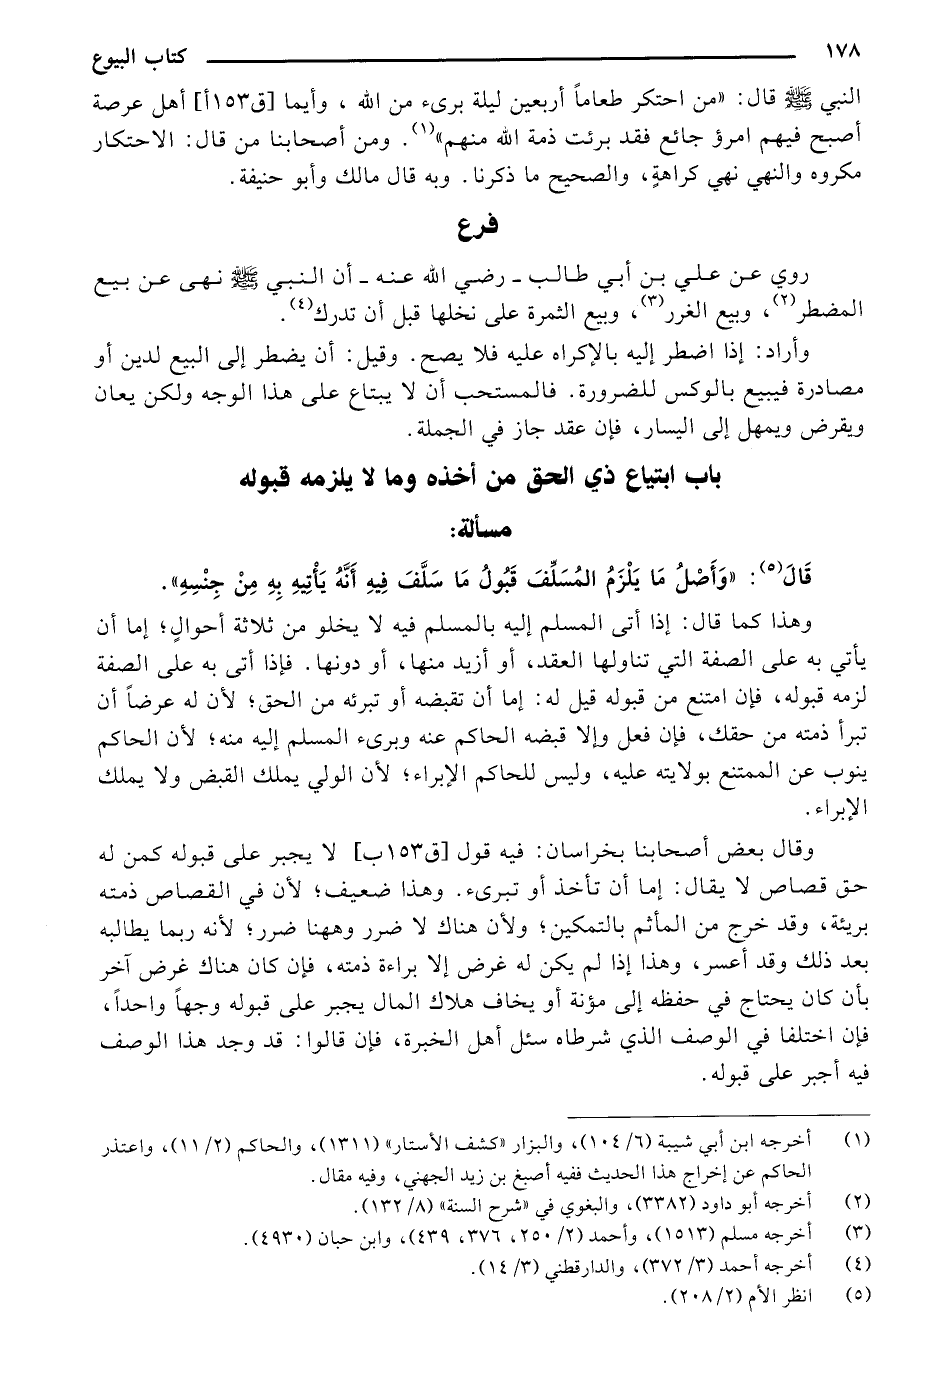 ١٧٨ كتاب البيوع
النبي ﷺ قال: «من احتكر طعاماً أربعين ليلة برىء من الله ، وأيما [ق١٥٣أ] أهل عرصة
أصبح فيهم امرؤ جائع فقد برئت ذمة الله منهم»(١). ومن أصحابنا من قال: الاحتكار
مكروه والنهي نهي كراهةٍ، والصحيح ما ذكرنا. وبه قال مالك وأبو حنيفة.
فرع
روي عن علي بن أبي طالب ـ رضي الله عنه ـ أن النبي ﷺ نهى عن بيع
المضطر(٢)، وبيع الغرر(٣)، وبيع الثمرة على نخلها قبل أن تدرك(٤).
وأراد: إذا اضطر إليه بالإكراه عليه فلا يصح. وقيل: أن يضطر إلى البيع لدين أو
مصادرة فيبيع بالوكس للضرورة. فالمستحب أن لا يبتاع على هذا الوجه ولكن يعان
ويقرض ويمهل إلى اليسار، فإن عقد جاز في الجملة.
باب ابتياع ذي الحق من أخذه وما لا يلزمه قبوله
مسألة:
قَالَ(٥): «وَأَصْلُ مَا يَلْزَمُ المُسَلِّفَ قَبُولُ مَا سَلَّفَ فِيهِ أَنَّهُ يَأْتِيهِ بِهِ مِنْ جِنْسِهِ».
وهذا كما قال: إذا أتى المسلم إليه بالمسلم فيه لا يخلو من ثلاثة أحوالٍ؛ إما أن
يأتي به على الصفة التي تناولها العقد، أو أزيد منها، أو دونها. فإذا أتى به على الصفة
لزمه قبوله، فإن امتنع من قبوله قيل له: إما أن تقبضه أو تبرئه من الحق؛ لأن له عرضاً أن
تبرأ ذمته من حقك، فإن فعل وإلا قبضه الحاكم عنه وبرىء المسلم إليه منه؛ لأن الحاكم
ينوب عن الممتنع بولايته عليه، وليس للحاكم الإبراء؛ لأن الولي يملك القبض ولا يملك
الإبراء.
وقال بعض أصحابنا بخراسان: فيه قول [ق١٥٣ب] لا يجبر على قبوله كمن له
حق قصاص لا يقال: إما أن تأخذ أو تبرىء. وهذا ضعيف؛ لأن في القصاص ذمته
بريئة، وقد خرج من المأثم بالتمكين؛ ولأن هناك لا ضرر وههنا ضرر؛ لأنه ربما يطالبه
بعد ذلك وقد أعسر، وهذا إذا لم يكن له غرض إلا براءة ذمته، فإن كان هناك غرض آخر
بأن كان يحتاج في حفظه إلى مؤنة أو يخاف هلاك المال يجبر على قبوله وجهاً واحداً،
فإن اختلفا في الوصف الذي شرطاه سئل أهل الخبرة، فإن قالوا: قد وجد هذا الوصف
فيه أجبر على قبوله.
(١) أخرجه ابن أبي شيبة (٦/ ١٠٤)، والبزار «كشف الأستار» (١٣١١)، والحاكم (٢/ ١١)، واعتذر
الحاكم عن إخراج هذا الحديث ففيه أصبغ بن زيد الجهني، وفيه مقال.
(٢) أخرجه أبو داود (٣٣٨٢)، والبغوي في «شرح السنة» (٨/ ١٣٢).
(٣) أخرجه مسلم (١٥١٣)، وأحمد (٢/ ٢٥٠، ٣٧٦، ٤٣٩)، وابن حبان (٤٩٣٠).
(٤) أخرجه أحمد (٣/ ٣٧٢)، والدارقطني (٣/ ١٤).
(٥) انظر الأم (٢/ ٢٠٨).